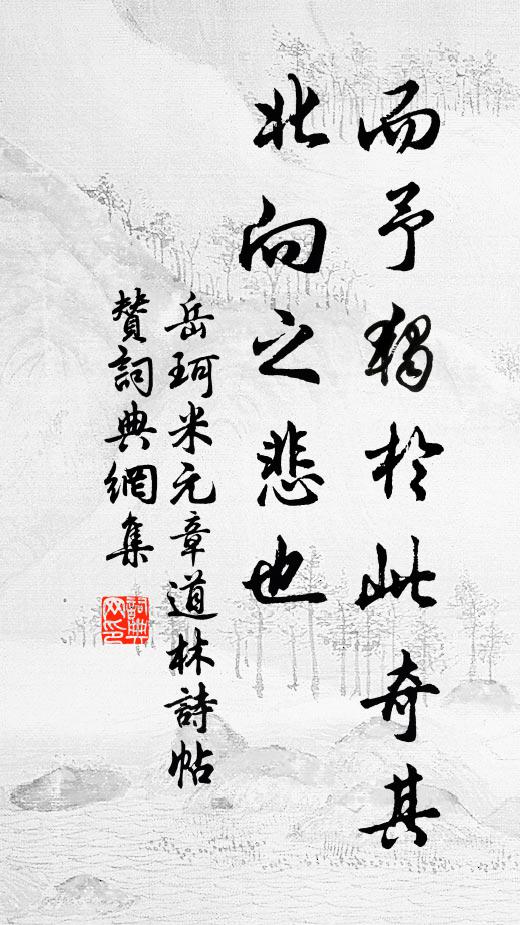 而予獨於此奇其
北向之悲也
岳珂米元章道林詩帖
贊詞典網集
詞典網印